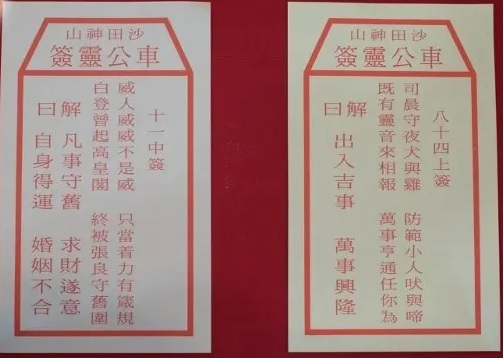 沙田神山
車公靈簽
十一中簽
威人威威不是威 只當着力有箴規
白登曾起高皇閣 終被張良守舊圍
解 凡事守舊 求財遂意
曰 自身得運 婚姻不合
沙田神山
車公靈簽
八十四上簽
司晨守夜犬與雞 防範小人吠與啼
既有靈音來相報 萬事亨通任你為
解曰 出入吉事 萬事興隆